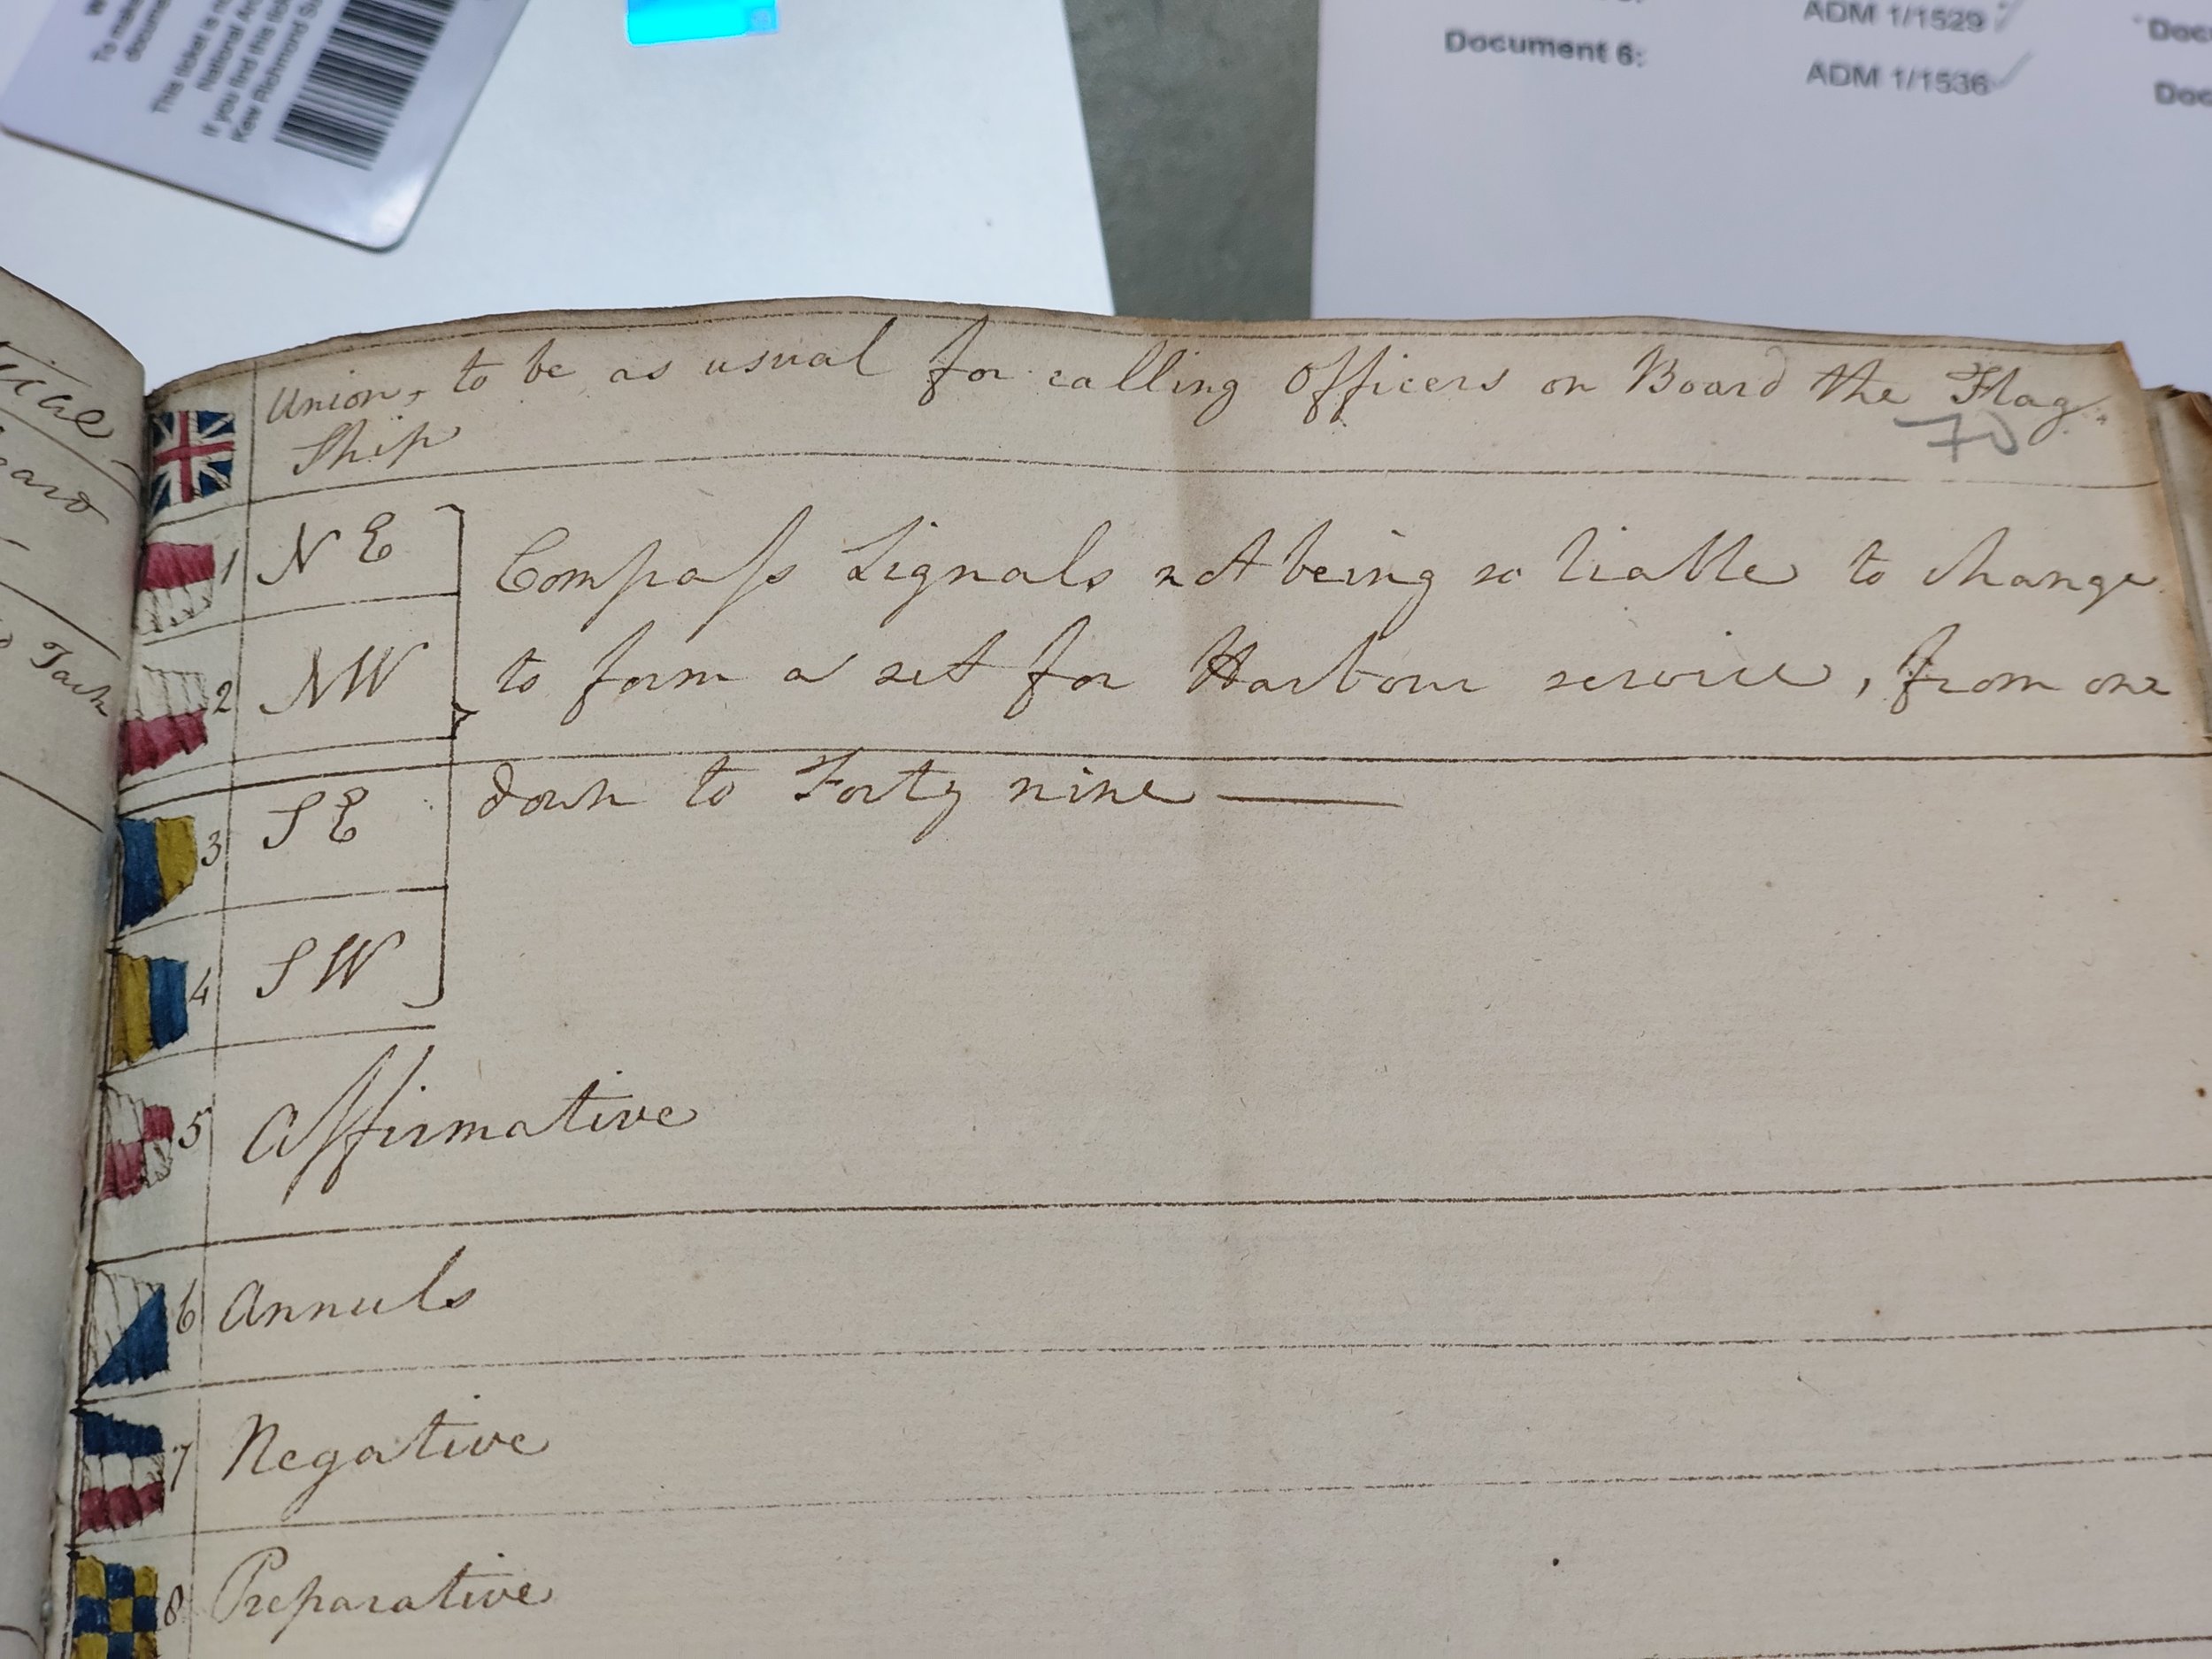 To make
docume
This ticket is n
National Ar
If you find this tick
Kew Richmond Su
ADM 1/1529
Document 6:
ADM 1/1536
Doc
Doc
Tack
Union, to be as usual for calling Officers on Board the Flag
Ship
70
1 N E
Compass Signals not being so liable to change
2 N W
to form a set for Harbour service, from one
down to Forty nine
3 S E
4 S W
5 Affirmative
6 Annuls
7 Negative
8 Preparative